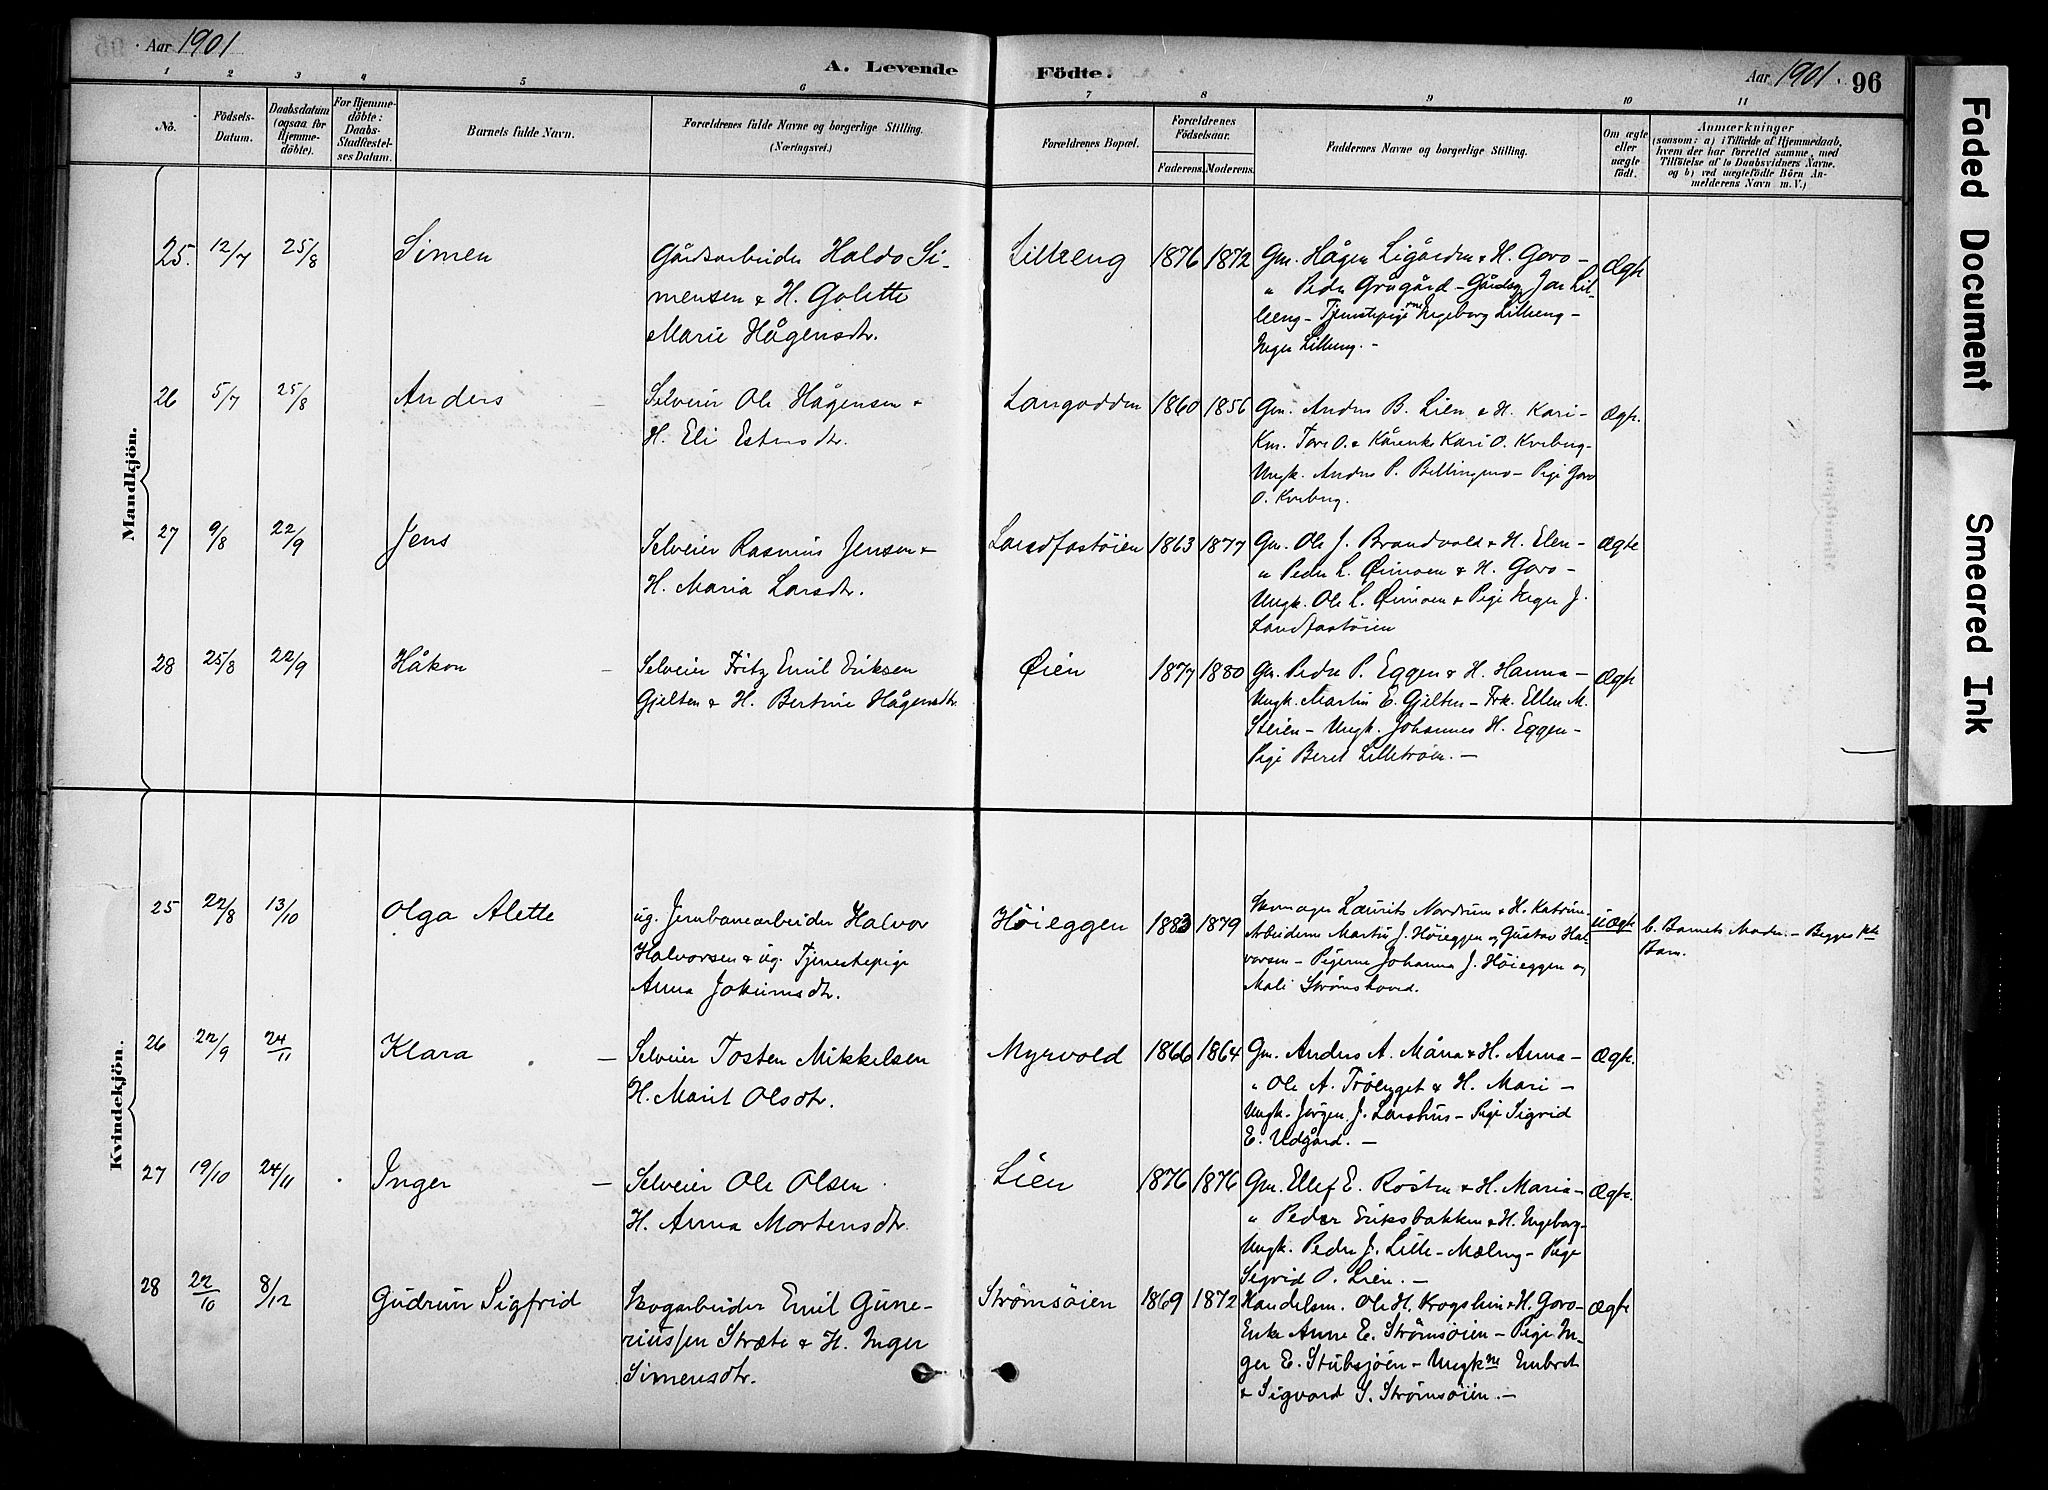 Aar 1901
A. Levende Födte.
Aar 1901. 96
1 2 3 4 5 6 7 8 9 10 11
No.
Födsels-
Datum.
Daabsdatum
(ogsaa for
Hjemme-
döbte).
For Hjemme-
döbte:
Daabs-
Stadfæstel-
ses Datum.
Barnets fulde Navn.
Forældrenes fulde Navne og borgerlige Stilling.
(Næringsvei.)
Forældrenes Bopæl.
Forældrenes
Födselsaar.
Faderens. Moderens.
Faddernes Navne og borgerlige Stilling.
Om ægte
eller
uægte
födt.
Anmærkninger
(saasom: a) i Tilfælde af Hjemmedaab,
hvem der har forrettet samme, med
Tilföielse af to Daabsvidners Navne,
og b) ved uægtefödte Börn An-
melderens Navn m. V.)
Mandkjön.
25. 12/7 25/8 Simen
Gårdsarbeider Haldo Si-
mensen & H. Golette
Marie Hågensdtr.
Lilleeng 1876 1872
Gm. Hågen Ligården & H. Goro -
" Peder Grøgård - Gårdbg Jon Lil-
leeng - Tjenestepige Ingeborg Lilleeng -
Inger Lilleeng. -
Ægte
26 5/7 25/8 Anders
Selveier Ole Hågensen &
H. Eli Estensdtr.
Langodden 1860 1856
Gm. Anders B. Lien & H. Kari -
Km. Tore O. & Kårenke Kari O. Kveberg -
Ungk. Anders P. Bellingmo - Pige Goro
O. Kveberg.
Ægte.
27 9/8 22/9 Jens
Selveier Rasmus Jensen &
H. Maria Larsdtr.
Landfastøien 1863 1877
Gm. Ole J. Brandvold & H. Elen -
" Peder L. Øimoen & H. Goro -
Ungk. Ole L. Øimoen & Pige Inger J.
Landfastøien
Ægte
28 25/8 22/9 Håkon
Selveier Fritz Emil Eriksen
Gjelten & H. Bertine Hågensdtr.
Øien 1877 1880
Gm. Peder P. Eggen & H. Hanna -
Ungk. Martin E. Gjelten - Frk. Ellen M.
Steien - Ungk. Johannes H. Eggen -
Pige Beret Lillestrøm. -
Ægte
Kvindekjön.
25 22/8 13/10 Olga Alette
ug. Jernbanearbeider Halvor
Halvorsen & ug. Tjenestepige
Anna Jokumsdtr.
Høieggen 1883 1879
Skomager Laurits Nordrum & H. Katrine
Arbeiderne Martin J. Høieggen og Gustav Hal-
vorsen - Pigerne Johanna J. Høieggen og
Mali Strømshoved.
uægte
b. Barnets Moder. - Begges 1ste
Barn.
26 22/9 24/11 Klara
Selveier Tosten Mikkelsen
H. Marit Olsdtr.
Myrvold 1866 1864
Gm. Anders A. Måna & H. Anna -
" Ole A. Trøeygget & H. Mari -
Ungk. Jørgen J. Larshus - Pige Sigrid
E. Udgård. -
Ægte.
27 19/10 24/11 Inger
Selveier Ole Olsen
H. Anna Mortensdtr.
Lien 1876 1876
Gm. Ellef E. Røsten & H. Maria -
" Peder Eriksbakken & H. Ingeborg -
Ungk. Peder J. Lille-Mæleng - Pige
Sigrid O. Lien. -
Ægte.
28 22/10 8/12 Gudrun Sigfrid
Skogarbeider Emil Gune-
riussen Stræte & H. Inger
Simensdtr.
Strømsøien 1869 1872
Handelsm. Ole H. Krogshim & H. Goro -
Enke Anne E. Strømsøien - Pige In-
ger E. Stubsjøen - Ungkne Embret
& Sigvard S. Strømsøien. -
Ægte
Faded Document
Smeared Ink